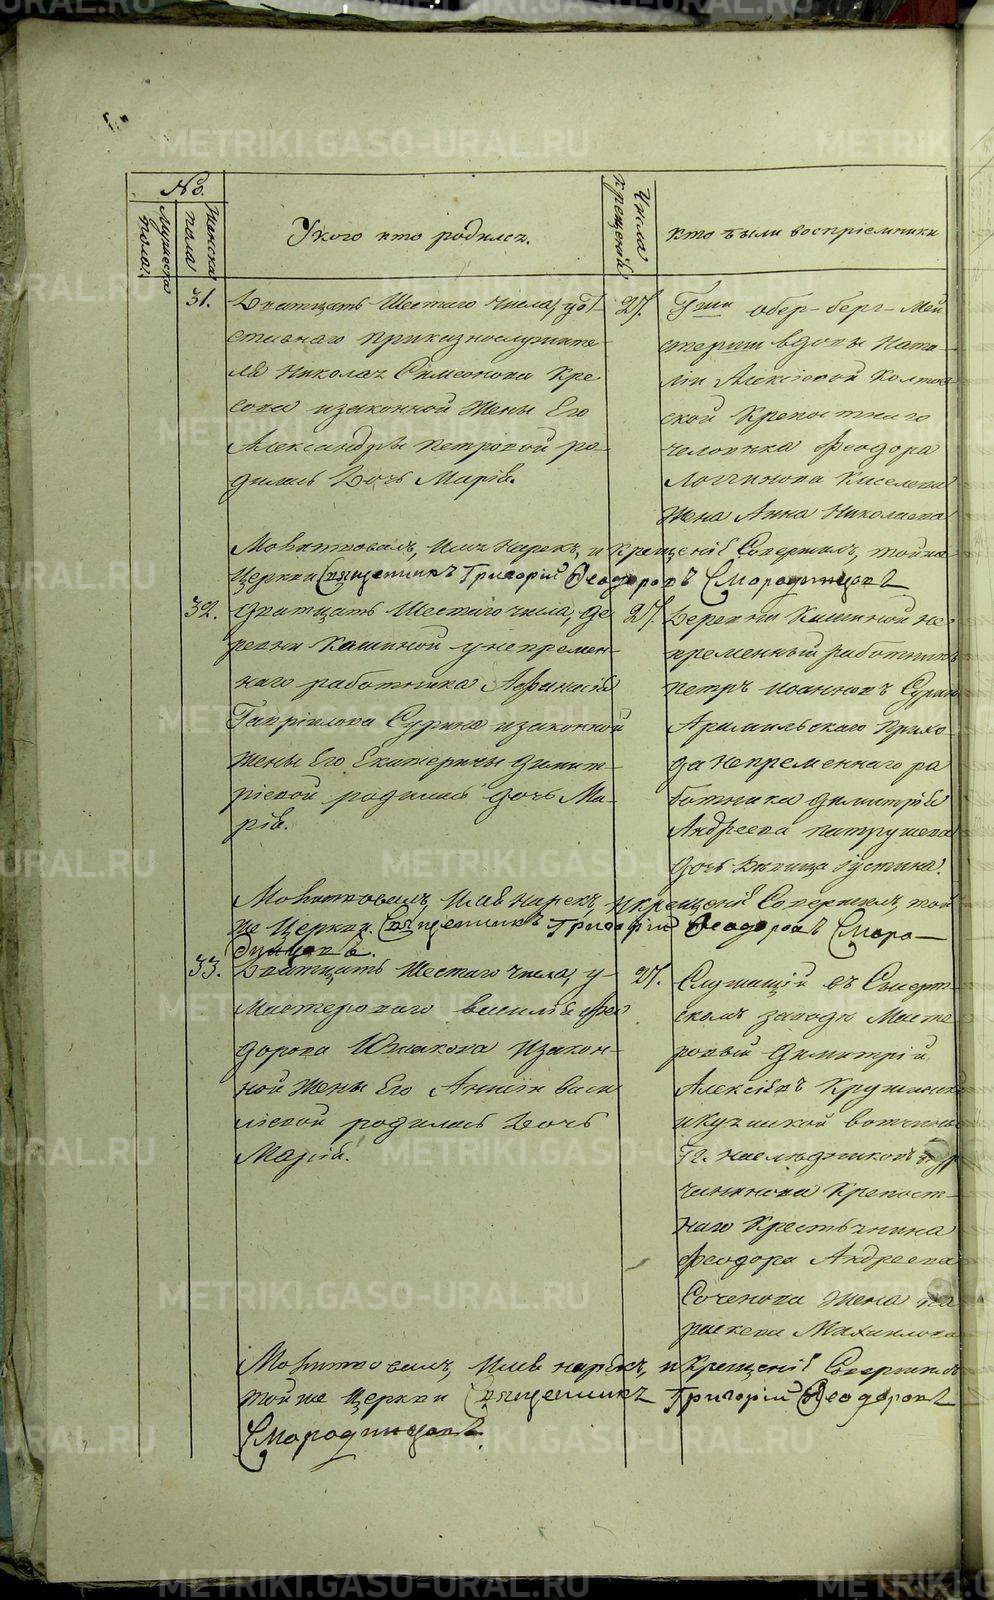 №.
Мужеска пола.
Женска пола
У кого кто родился.
Числа крещенiй
кто были воспрiемники
31.
Дватцать Шестаго числа, у
ставнаго приказнослужите-
ля Николая Симеонова Кре
сова и законной жены Его
Александры Петровой ро-
дилась Дочь Марiя.
27.
Гжи обер-берг-Мей
стерши вдовы Ната-
лiи Алексiевой Колтов
ской Крепостнаго
человека Феодора
Логгинова Киселева
жена Анна Николаева
Молитвовалъ, Имя Нарекъ, и Крещенiе Совершилъ, тойже
Церкви Священникъ Григорiй Феодоровъ Смородинцовъ
32.
Дватцать Шестаго числа, де
ревни Кашиной у непремен-
наго работника Афанасiя
Гаврiилова Сурина и законной
жены Его Екатерины Димит-
рiевой родилась дочь Ма-
рiя.
27.
Деревни Кашиной не
пременный работникъ
Петръ Иоанновъ Суринъ
Арамильскаго Прихо-
да Непременнаго ра
ботника Димитрiя
Андреева Патрушева
дочь Девица Iустина.
Молитвовалъ, Имя нарекъ, и крещенiе Совершилъ, той
же Церкви. Священникъ Григорiй Феодоровъ Сморо-
динцовъ.
33.
Дватцать Шестаго числа, у
Мастероваго Василiя Фео
дорова Ушакова и закон-
ной жены Его Анны Васи
лiевой родилась Дочь
Марiя.
27.
Служащiй въ Сысерт-
скомъ заводе Масте
ровый Димитрiй
Алексiевъ
вотчины
Гг. наследниковъ Тур
чанинова Крепост-
наго Крестьянина
Феодора Андреева
жена Па
раскева Михаилова
Молитвовалъ, Имя нарекъ, и Крещенiе Совершилъ
тойже Церкви Священникъ Григорiй Феодоровъ
Смородинцовъ.
METRIKI.GASO-URAL.RU